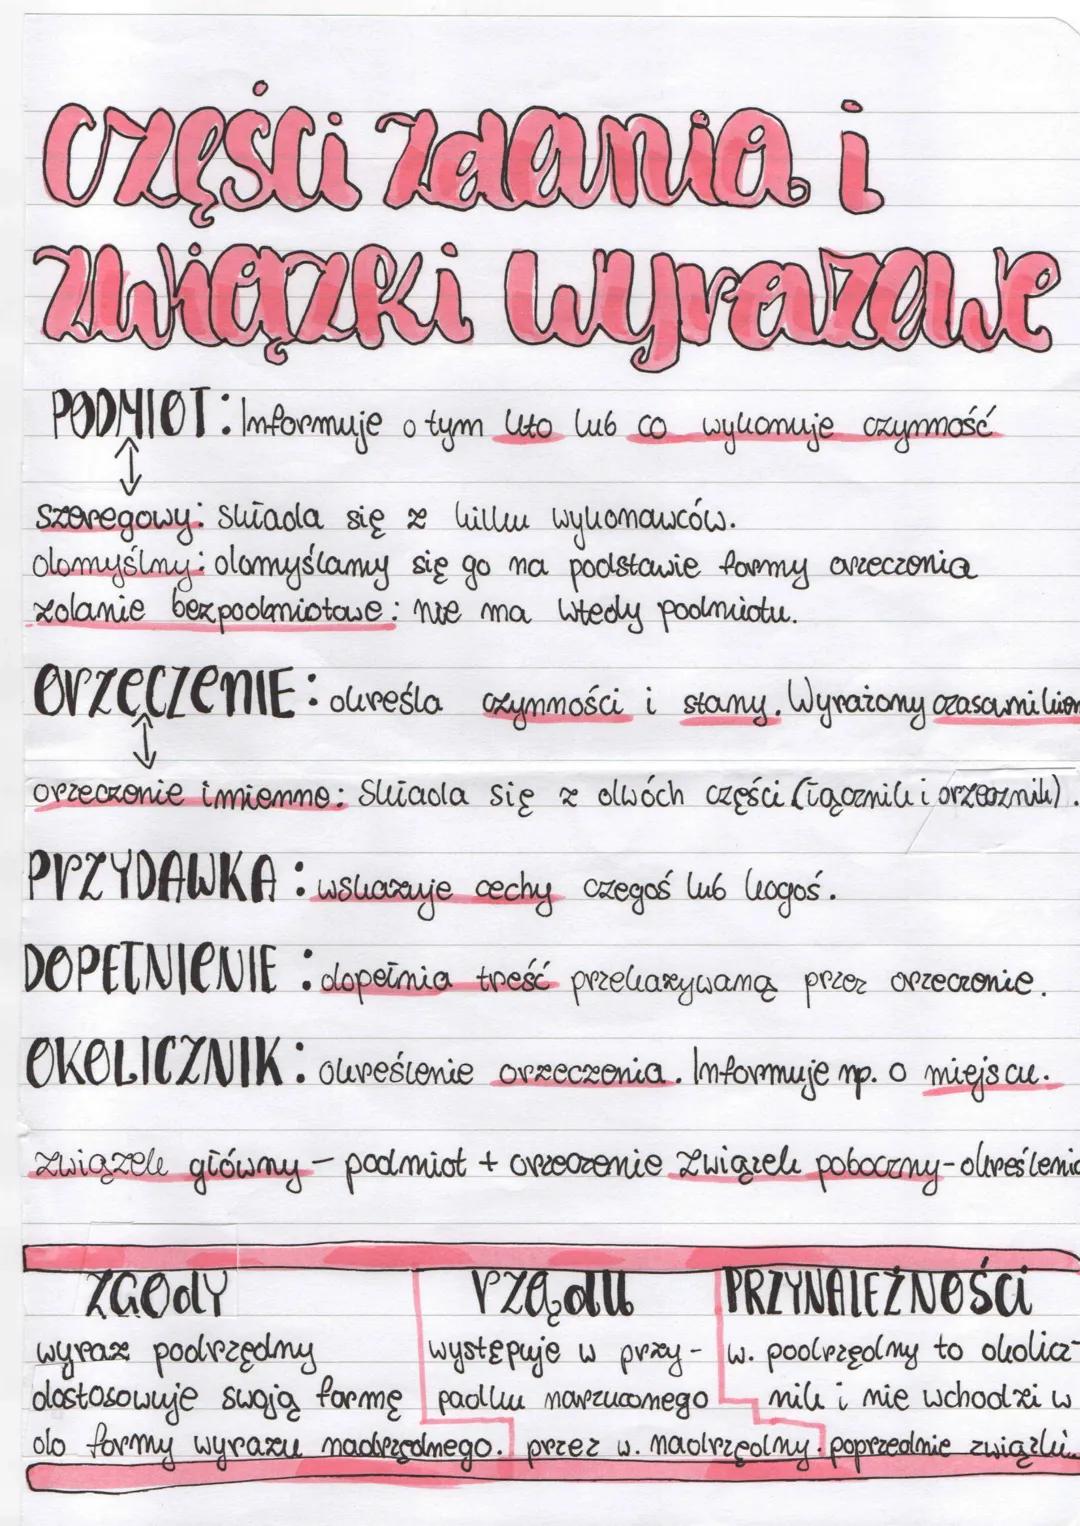 części zdania i
związki wyrazowe
PODMIOT: Informuje o tym kto lub co wykonuje czynność
szeregowy: Składa się z kilku wykonawców.
domyślny: domyślamy się go na podstawie formy orzeczenia
zdanie bezpodmiotowe: nie ma wtedy podmiotu.
ORZECZENIE: określa czynności i stany. Wyrażony czasownikiem
orzeczenie imienne: Składa się z dwóch części (łącznik i orzecznik).
PRZYDAWKA: wskazuje cechy czegoś lub kogoś.
DOPEŁNIENIE: dopełnia treść przekazywaną przez orzeczenie.
OKOLICZNIK: określenie orzeczenia. Informuje np. o miejscu.
związek główny - podmiot + orzeczenie związek poboczny - określenia
ZGODY
wyraz podrzędny
dostosowuje swoją formę
do formy wyrazu nadrzędnego.
RZĄDU
występuje w przy-
padku narzuconego
przez w. nadrzędny.
PRZYNALEŻNOŚCI
w. podrzędny to okolicz-
nik i nie wchodzi w
poprzednie związki.